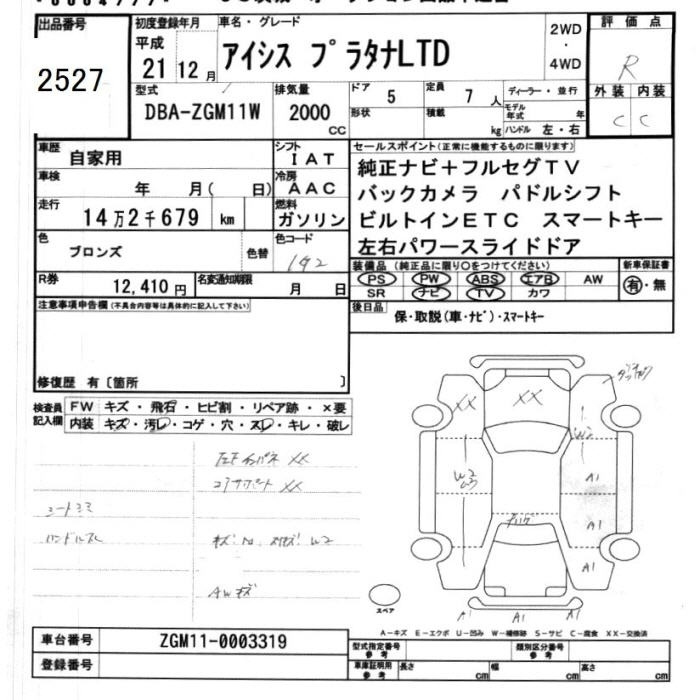 出品番号
2527
初度登録年月
平成
21 12月
車名・グレード
アイシス プラタナLTD
2WD
・
4WD
評価点
R
外装 内装
C C
型式
DBA-ZGM11W
排気量
2000
CC
ドア 5
定員 7 人
形状
積載 kg
ディーラー・並行
モデル年式 年
ハンドル 左・右
車歴 自家用
シフト IAT
車検 年 月( 日)
冷房 AAC
走行 14万2千679 km
燃料 ガソリン
色 ブロンズ 色替
色コード 1G2
R券 12,410円
名変通知期限 月 日
セールスポイント(正常に機能するものに限ります)
純正ナビ+フルセグTV
バックカメラ パドルシフト
ビルトインETC スマートキー
左右パワースライドドア
装備品 (純正品に限り〇をつけてください)
PS PW ABS エアB AW
SR ナビ TV カワ
新車保証書
有・無
後日品
保・取説(車・ナビ)・スマートキー
注意事項申告欄(不具合内容等は具体的に記入して下さい)
修復歴 有〔箇所 〕
検査員記入欄
FW キズ・飛石・ヒビ割・リペア跡・×要
内装 キズ・汚レ・コゲ・穴・スレ・キレ・破レ
コアサポート XX
シートヨゴレ
ハンドルスレ
W2
AWキズ
XX
XX
W2
W2
A1
A1
A1
A1
A1
A1
スペア
A-キズ E-エクボ U-凹み W-補修跡 S-サビ C-腐食 XX-交換済
車台番号 ZGM11-0003319
登録番号
型式指定番号
参考
類別区分番号
参考
車庫証明用
参考
長さ cm
幅 cm
高さ cm